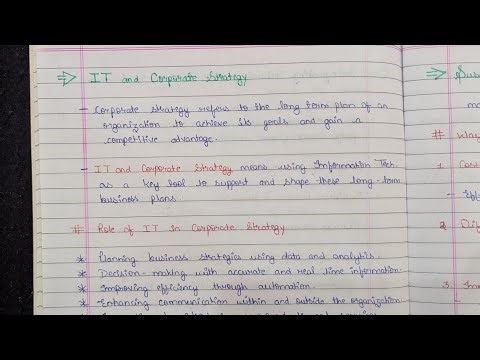 ⇒ IT and Corporate Strategy
- Corporate strategy refers to the long term plan of an
organization to achieve its goals and gain a
competitive advantage.
- IT and Corporate Strategy means using Information Tech.
as a key tool to support and shape these long-term
business plans.
# Role of IT in Corporate Strategy
* Planning business strategies using data and analytics.
* Decision-making with accurate and real time information.
* Improving efficiency through automation.
* Enhancing communication within and outside the organization.
⇒
#
1.
2.
3.